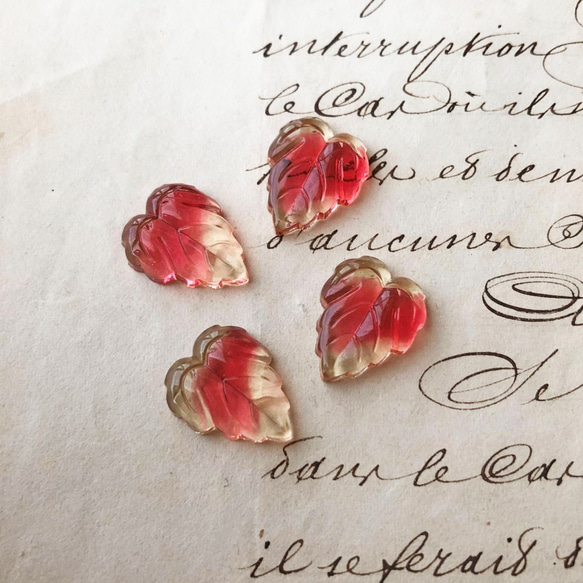 interruption
le Cas où ils
et de
d'aucunes
Se
dans le Cas
il se ferait